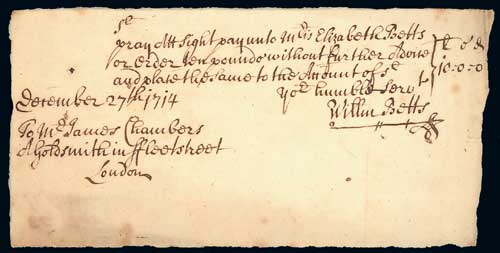 Sr
pray Att Sight pay unto Mrs Elizabeth Betts
or order Ten pounds without further Advice £ s d
and place the same to the Amount of Sr 10:0:0
yor humble Servt
December 27th 1714
Willm Betts
To Mr James Chambers
A Goldsmith in ffleetstreet
London